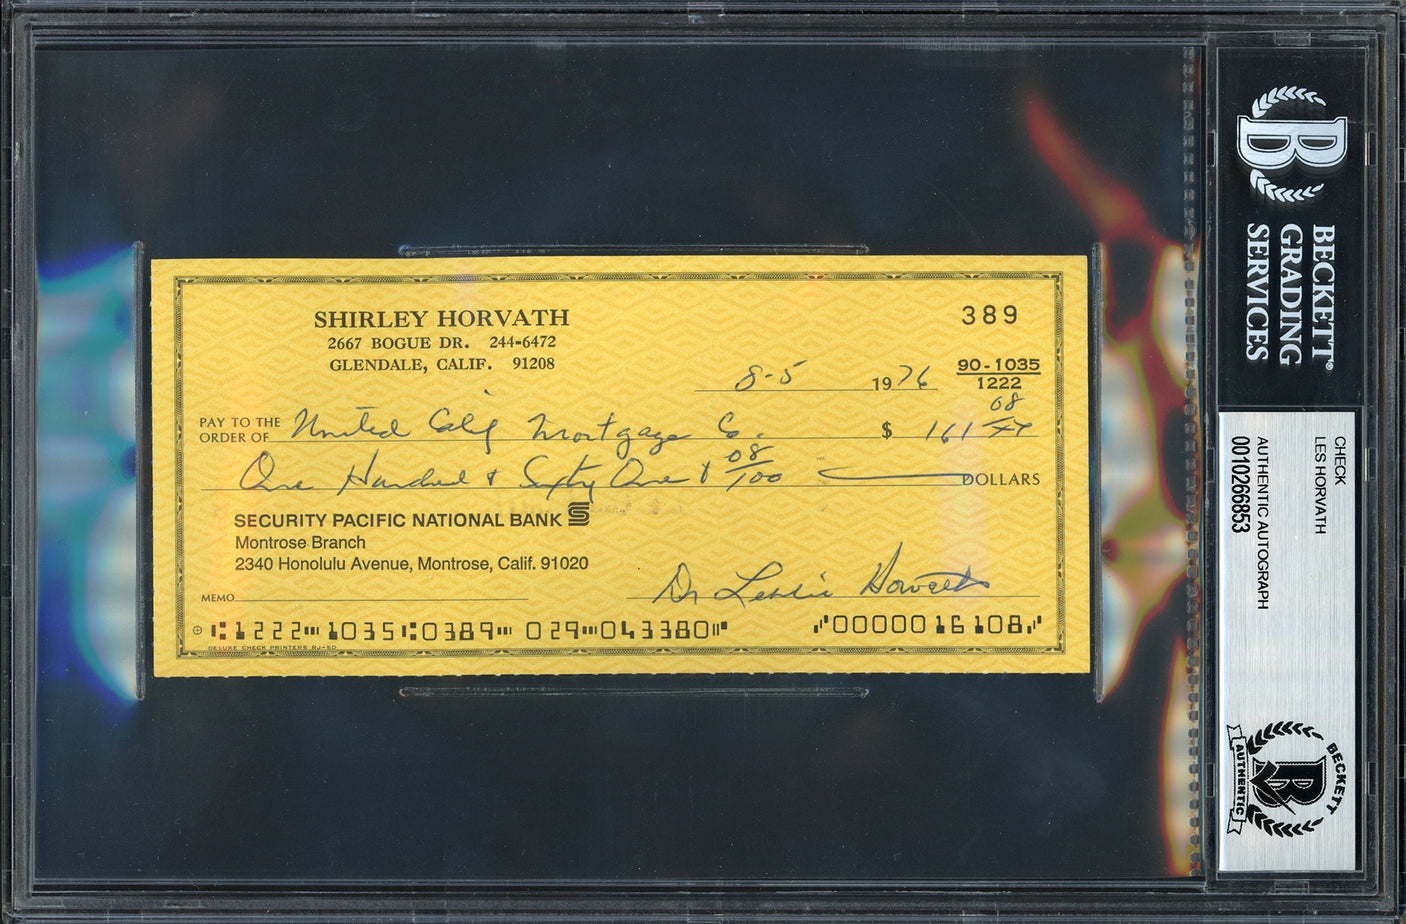 SHIRLEY HORVATH
2667 BOGUE DR. 244-6472
GLENDALE, CALIF. 91208
389
8-5 1976
90-1035
1222
PAY TO THE
ORDER OF United Calif Mortgage Co. $ 161 08/XX
One Hundred & Sixty One & 08/100 DOLLARS
SECURITY PACIFIC NATIONAL BANK
Montrose Branch
2340 Honolulu Avenue, Montrose, Calif. 91020
MEMO
Dr Leslie Horvath
⑆1222⑉1035⑆0389⑉ 029⑉043380⑈ ⑈0000016108⑈
DELUXE CHECK PRINTERS RJ-5D
B
BECKETT
GRADING
SERVICES
CHECK
LES HORVATH
AUTHENTIC AUTOGRAPH
0010266853
BECKETT
B
AUTHENTIC